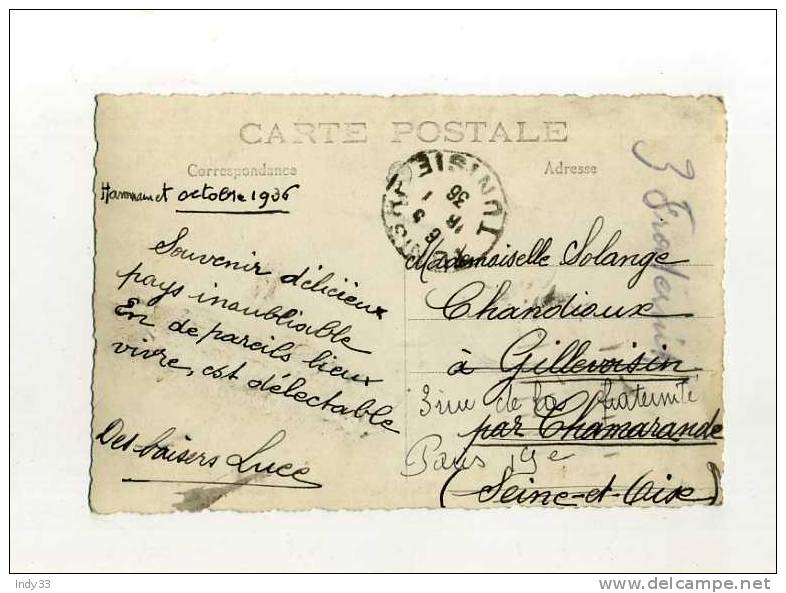 CARTE POSTALE
Correspondance
Adresse
Hammamet octobre 1936
Souvenir délicieux
pays inoubliable
En de pareils lieux
vivre, est délectable
Des baisers Luce
TUNISIE
36
Mademoiselle Solange
Chandioux
à Gillevoisin
3 rue de la fraternité
par Chamarande
Paris 19e
(Seine-et-Oise)
3
Indy33
delcampe.net